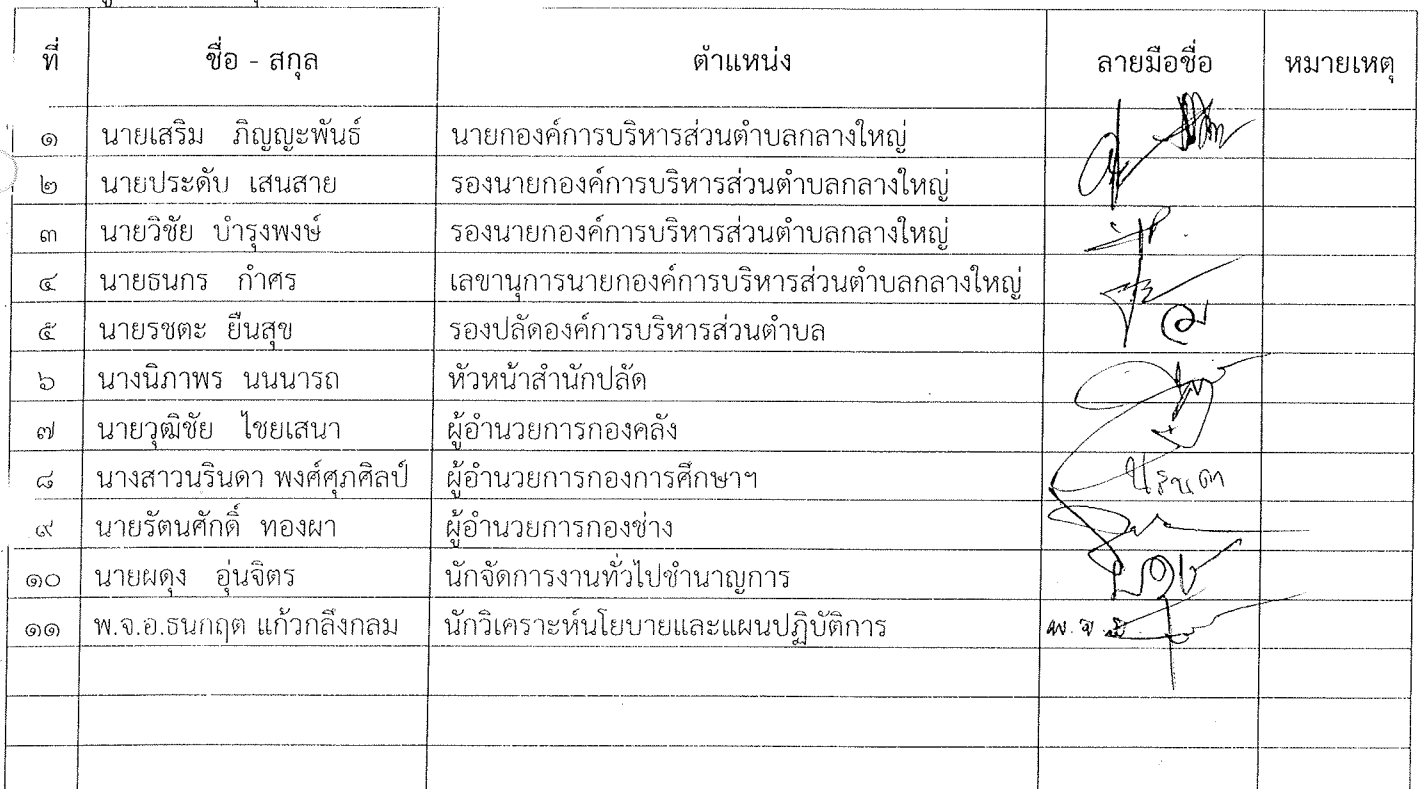 ที่ ชื่อ - สกุล ตำแหน่ง ลายมือชื่อ หมายเหตุ
๑ นายเสริม ภิญญะพันธ์ นายกองค์การบริหารส่วนตำบลกลางใหญ่
๒ นายประดับ เสนสาย รองนายกองค์การบริหารส่วนตำบลกลางใหญ่
๓ นายวิชัย บำรุงพงษ์ รองนายกองค์การบริหารส่วนตำบลกลางใหญ่
๔ นายธนกร กำศร เลขานุการนายกองค์การบริหารส่วนตำบลกลางใหญ่
๕ นายรชตะ ยืนสุข รองปลัดองค์การบริหารส่วนตำบล
๖ นางนิภาพร นนนารถ หัวหน้าสำนักปลัด
๗ นายวุฒิชัย ไชยเสนา ผู้อำนวยการกองคลัง
๘ นางสาวนรินดา พงศ์ศุภศิลป์ ผู้อำนวยการกองการศึกษาฯ
๙ นายรัตนศักดิ์ ทองผา ผู้อำนวยการกองช่าง
๑๐ นายผดุง อุ่นจิตร นักจัดการงานทั่วไปชำนาญการ
๑๑ พ.จ.อ.ธนกฤต แก้วกลึงกลม นักวิเคราะห์นโยบายและแผนปฏิบัติการ พ.จ.อ.